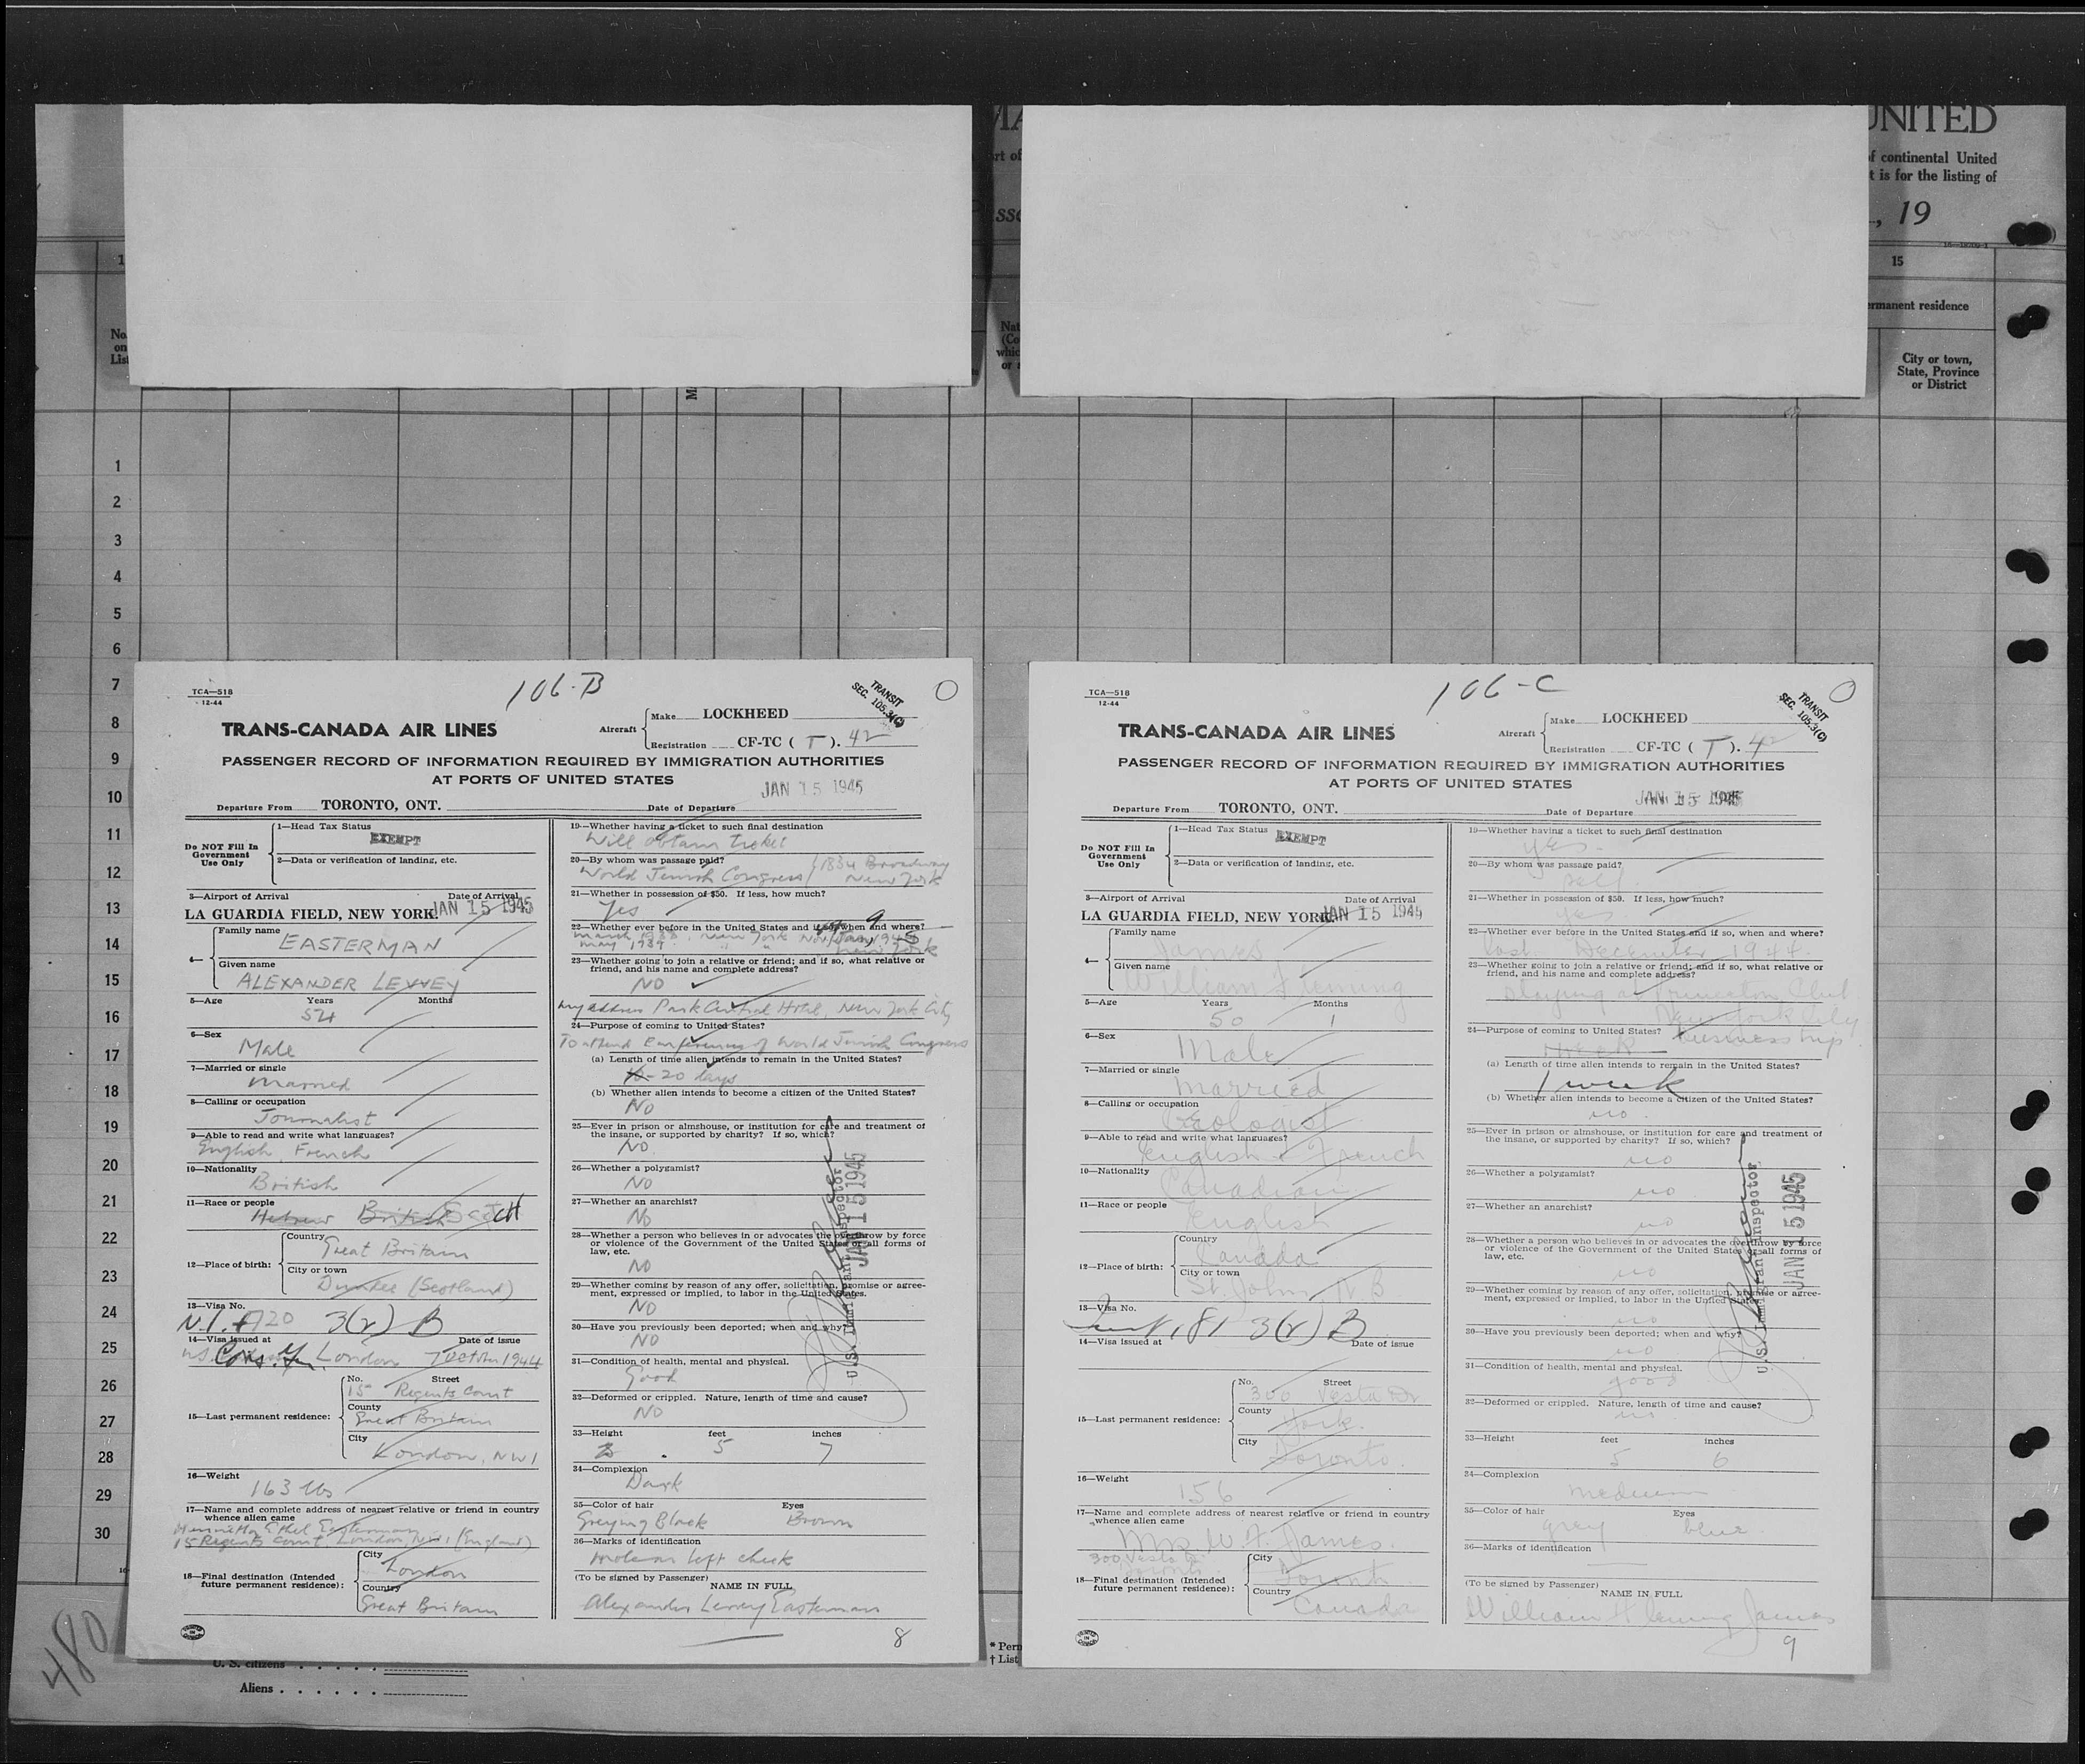 MA
UNITED
rt of
of continental United
t is for the listing of
sse
, 19
15
rmanent residence
No.
on
List
Nat
(Co
whic
or
City or town,
State, Province
or District
1
2
3
4
5
6
7
8
9
10
11
12
13
14
15
16
17
18
19
20
21
22
23
24
25
26
27
28
29
30
TCA—518
12-44
106-B
TRANSIT
SEC. 105.3(C)
TRANS-CANADA AIR LINES
Aircraft
Make LOCKHEED
Registration CF-TC ( T ). 42
PASSENGER RECORD OF INFORMATION REQUIRED BY IMMIGRATION AUTHORITIES
AT PORTS OF UNITED STATES
JAN 15 1945
Departure From TORONTO, ONT. Date of Departure
Do NOT Fill In
Government
Use Only
1—Head Tax Status
EXEMPT
2—Data or verification of landing, etc.
3—Airport of Arrival Date of Arrival
LA GUARDIA FIELD, NEW YORK. JAN 15 1945
4—
Family name
EASTERMAN
Given name
ALEXANDER LEVVEY
5—Age Years Months
54
6—Sex
Male
7—Married or single
Married
8—Calling or occupation
Journalist
9—Able to read and write what languages?
English, French
10—Nationality
British
11—Race or people
Hebrew British SCOTCH
12—Place of birth:
Country
Great Britain
City or town
Dundee (Scotland)
13—Visa No.
N.I. 720 3(2) B
14—Visa issued at Date of issue
U.S. Cons. Gen. London 7 October 1944
15—Last permanent residence:
No. Street
15 Regents Court
County
Great Britain
City
London, NW1
16—Weight
163 lbs
17—Name and complete address of nearest relative or friend in country
whence alien came
Henrietta Ethel Easterman
15 Regents Court, London, NW1 (England)
18—Final destination (Intended
future permanent residence):
City
London
Country
Great Britain
PRINTED IN CANADA
19—Whether having a ticket to such final destination
Will obtain ticket
20—By whom was passage paid?
World Jewish Congress 1834 Broadway
New York
21—Whether in possession of $50. If less, how much?
Yes
22—Whether ever before in the United States and if so, when and where?
March 1938, New York
May 1939 " "
New York
23—Whether going to join a relative or friend; and if so, what relative or
friend, and his name and complete address?
NO
my address Park Central Hotel, New York City
24—Purpose of coming to United States?
To attend Conference of World Jewish Congress
(a) Length of time alien intends to remain in the United States?
20 days
(b) Whether alien intends to become a citizen of the United States?
No
25—Ever in prison or almshouse, or institution for care and treatment of
the insane, or supported by charity? If so, which?
NO
26—Whether a polygamist?
NO
27—Whether an anarchist?
NO
28—Whether a person who believes in or advocates the overthrow by force
or violence of the Government of the United States or all forms of
law, etc.
NO
29—Whether coming by reason of any offer, solicitation, promise or agree-
ment, expressed or implied, to labor in the United States.
NO
30—Have you previously been deported; when and why?
NO
31—Condition of health, mental and physical.
Good
32—Deformed or crippled. Nature, length of time and cause?
NO
33—Height feet inches
5 7
34—Complexion
Dark
35—Color of hair Eyes
Greying Black Brown
36—Marks of identification
mole on left cheek
(To be signed by Passenger) NAME IN FULL
Alexander Levvey Easterman
8
U.S. Immigrant Inspector
JAN 15 1945
TCA—518
12-44
106-C
TRANSIT
SEC. 105.3(C)
TRANS-CANADA AIR LINES
Aircraft
Make LOCKHEED
Registration CF-TC ( T ). 42
PASSENGER RECORD OF INFORMATION REQUIRED BY IMMIGRATION AUTHORITIES
AT PORTS OF UNITED STATES
JAN 15 1945
Departure From TORONTO, ONT. Date of Departure
Do NOT Fill In
Government
Use Only
1—Head Tax Status
EXEMPT
2—Data or verification of landing, etc.
3—Airport of Arrival Date of Arrival
LA GUARDIA FIELD, NEW YORK. JAN 15 1945
4—
Family name
James
Given name
William Fleming
5—Age Years Months
50 1
6—Sex
Male
7—Married or single
Married
8—Calling or occupation
Geologist
9—Able to read and write what languages?
English & French
10—Nationality
Canadian
11—Race or people
English
12—Place of birth:
Country
Canada
City or town
St. John N.B
13—Visa No.
181 3(2) B
14—Visa issued at Date of issue
15—Last permanent residence:
No. Street
300 Vesta Dr
County
York.
City
Toronto.
16—Weight
156
17—Name and complete address of nearest relative or friend in country
whence alien came
Mrs. W. F. James.
300 Vesta Dr
Toronto
18—Final destination (Intended
future permanent residence):
City
Toronto
Country
Canada
PRINTED IN CANADA
19—Whether having a ticket to such final destination
yes.
20—By whom was passage paid?
self.
21—Whether in possession of $50. If less, how much?
yes.
22—Whether ever before in the United States and if so, when and where?
last December 1944.
23—Whether going to join a relative or friend; and if so, what relative or
friend, and his name and complete address?
staying at Princeton Club
New York City
24—Purpose of coming to United States?
business trip
1 week
(a) Length of time alien intends to remain in the United States?
1 week
(b) Whether alien intends to become a citizen of the United States?
no.
25—Ever in prison or almshouse, or institution for care and treatment of
the insane, or supported by charity? If so, which?
no
26—Whether a polygamist?
no
27—Whether an anarchist?
no
28—Whether a person who believes in or advocates the overthrow by force
or violence of the Government of the United States or all forms of
law, etc.
no
29—Whether coming by reason of any offer, solicitation, promise or agree-
ment, expressed or implied, to labor in the United States.
no
30—Have you previously been deported; when and why?
no
31—Condition of health, mental and physical.
good
32—Deformed or crippled. Nature, length of time and cause?
no.
33—Height feet inches
5 6
34—Complexion
medium
35—Color of hair Eyes
grey blue
36—Marks of identification
(To be signed by Passenger) NAME IN FULL
William Fleming James
9
U.S. Immigrant Inspector
JAN 15 1945
480
U. S. citizens
Aliens
* Perm
† List